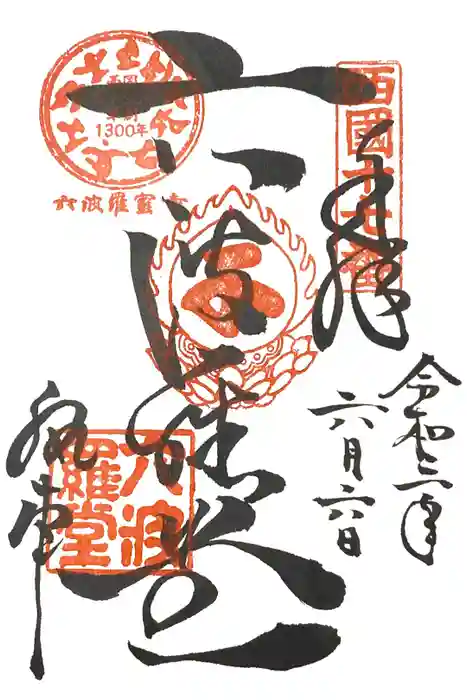 西國十七番
奉拝
令和三年
六月六日
1300年
六波羅蜜寺
六波羅堂
六波
羅堂
執事